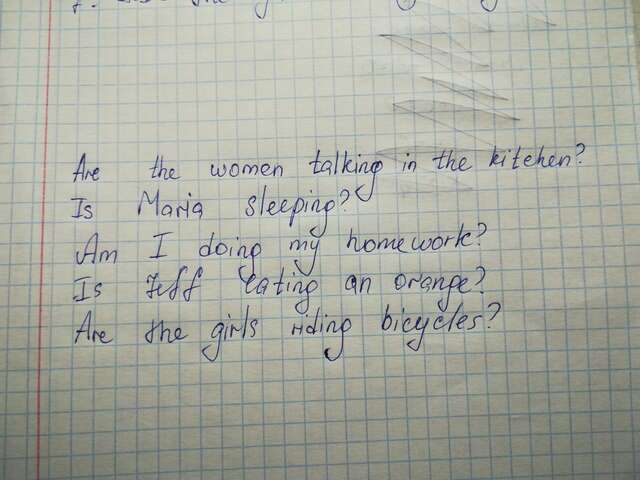 Are the women talking in the kitchen?
Is Maria sleeping?
Am I doing my homework?
Is Jeff eating an orange?
Are the girls riding bicycles?